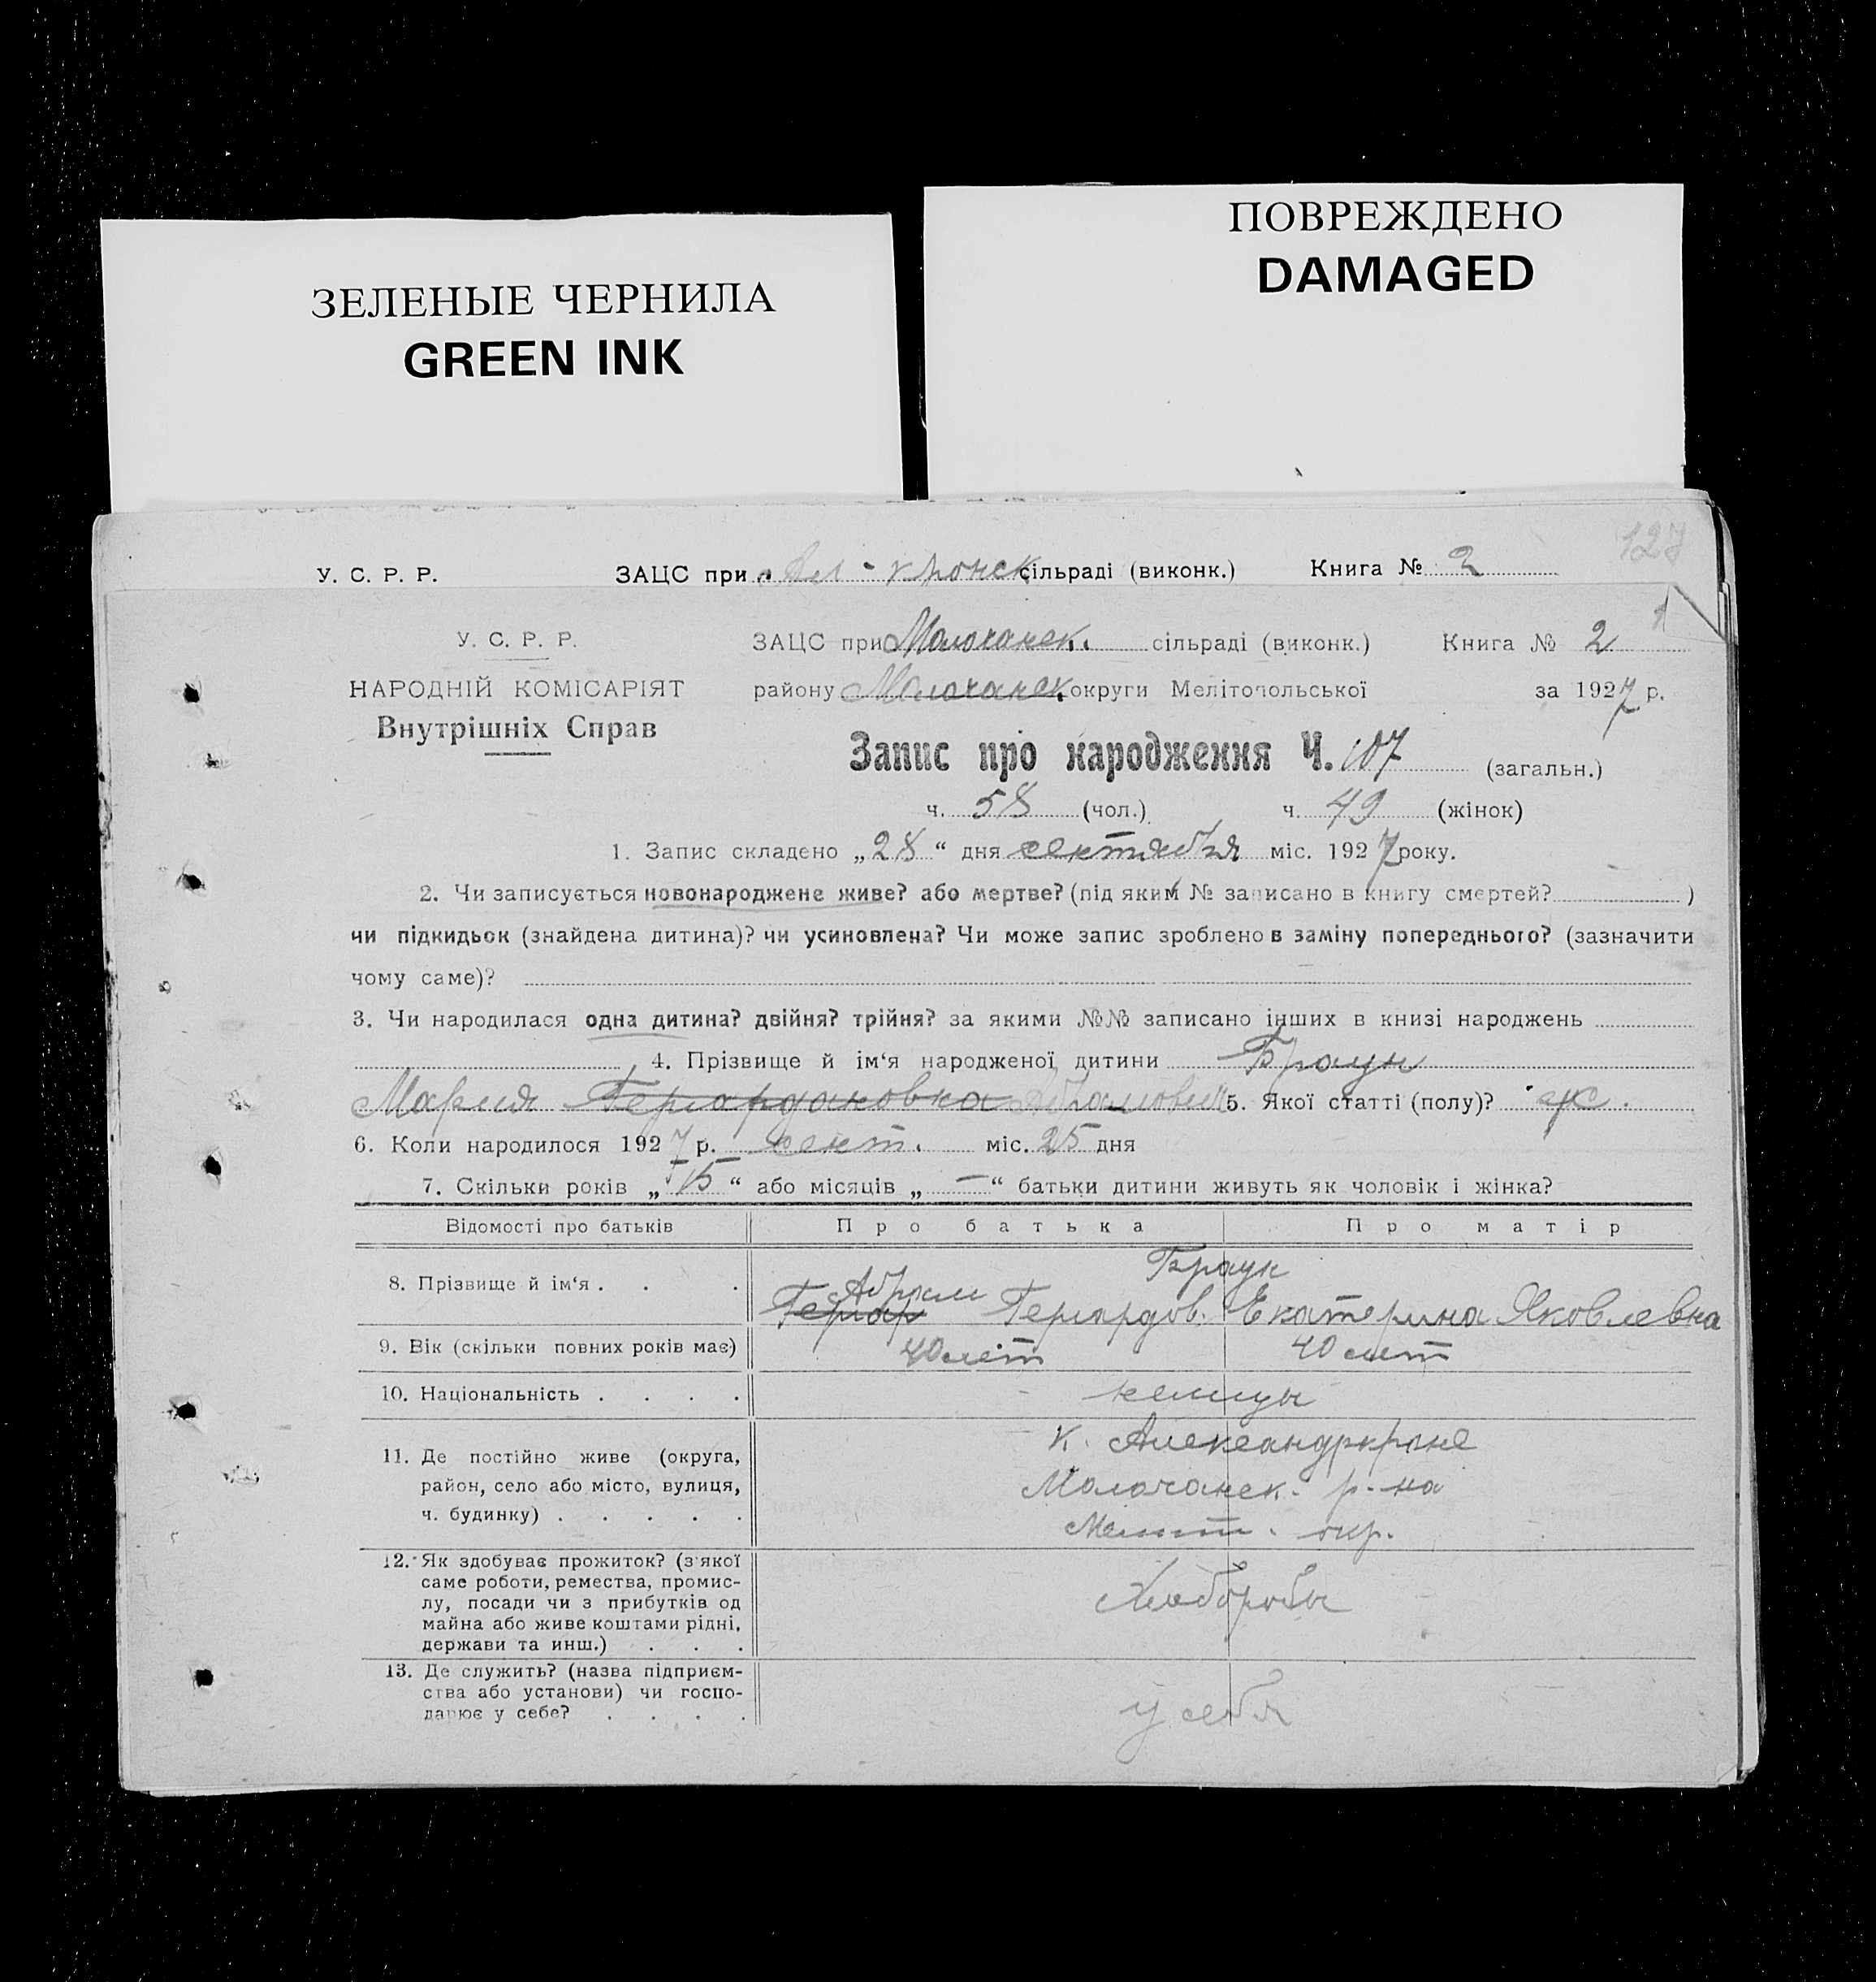 ЗЕЛЕНЫЕ ЧЕРНИЛА
GREEN INK
ПОВРЕЖДЕНО
DAMAGED
127
У. С. Р. Р. ЗАЦС при Ал-кронск сільраді (виконк.) Книга № 2
У. С. Р. Р. ЗАЦС при Молочанск. сільраді (виконк.) Книга № 2
НАРОДНІЙ КОМІСАРІЯТ району Молочанск. округи Мелітопольської за 1927 р.
Внутрішніх Справ
Запис про народження Ч. 107 (загальн.)
ч. 58 (чол.) ч. 49 (жінок)
1. Запис складено „28“ дня сентября міс. 1927 року.
2. Чи записується новонароджене живе? або мертве? (під яким № записано в книгу смертей? )
чи підкидьок (знайдена дитина)? чи усиновлена? Чи може запис зроблено в заміну попереднього? (зазначити
чому саме)?
3. Чи народилася одна дитина? двійня? трійня? за якими №№ записано інших в книзі народжень
4. Прізвище й ім‘я народженої дитини Браун
Мария Герардовна Абрамовна 5. Якої статті (полу)? ж.
6. Коли народилося 1927 р. сент. міс. 25 дня
7. Скільки років „15“ або місяців „—“ батьки дитини живуть як чоловік і жінка?
Відомості про батьків Про батька Про матір
8. Прізвище й ім‘я . . . Браун
Абрам
Герар Герардов. Екатерина Яковлевна
9. Вік (скільки повних років має) 40 лет 40 лет
10. Національність . . . . немцы
11. Де постійно живе (округа, к. Александркроне
район, село або місто, вулиця, Молочанск. р-на
ч. будинку) . . . . . Мелит. окр.
12. Як здобуває прожиток? (з якої
саме роботи, ремества, промис-
лу, посади чи з прибутків од Хлеборобы
майна або живе коштами рідні,
держави та инш.) . . .
13. Де служить? (назва підприєм-
ства або установи) чи госпо-
дарює у себе? . . . . у себя